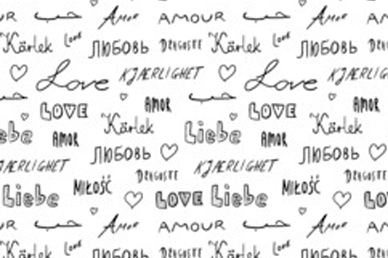 AMOUR حب Amor AMOUR حب Amor
Kärlek Love ЛЮБОВЬ DRAGOSTE Kärlek Love ЛЮБОВЬ DRAGOSTE
Love KJÆRLIGHET Love KJÆRLIGHET
حب حب
LOVE AMOR LOVE AMOR
Liebe Kärlek Liebe Kärlek
AMOR AMOR
KJÆRLIGHET ЛЮБОВЬ KJÆRLIGHET ЛЮБОВЬ
DRAGOSTE DRAGOSTE
Liebe MIŁOŚĆ LOVE Liebe MIŁOŚĆ LOVE
حب Amor AMOUR حب Amor AMOUR
Kärlek Love ЛЮБОВЬ DRAGOSTE Kärlek Love ЛЮБОВЬ DRAGOSTE